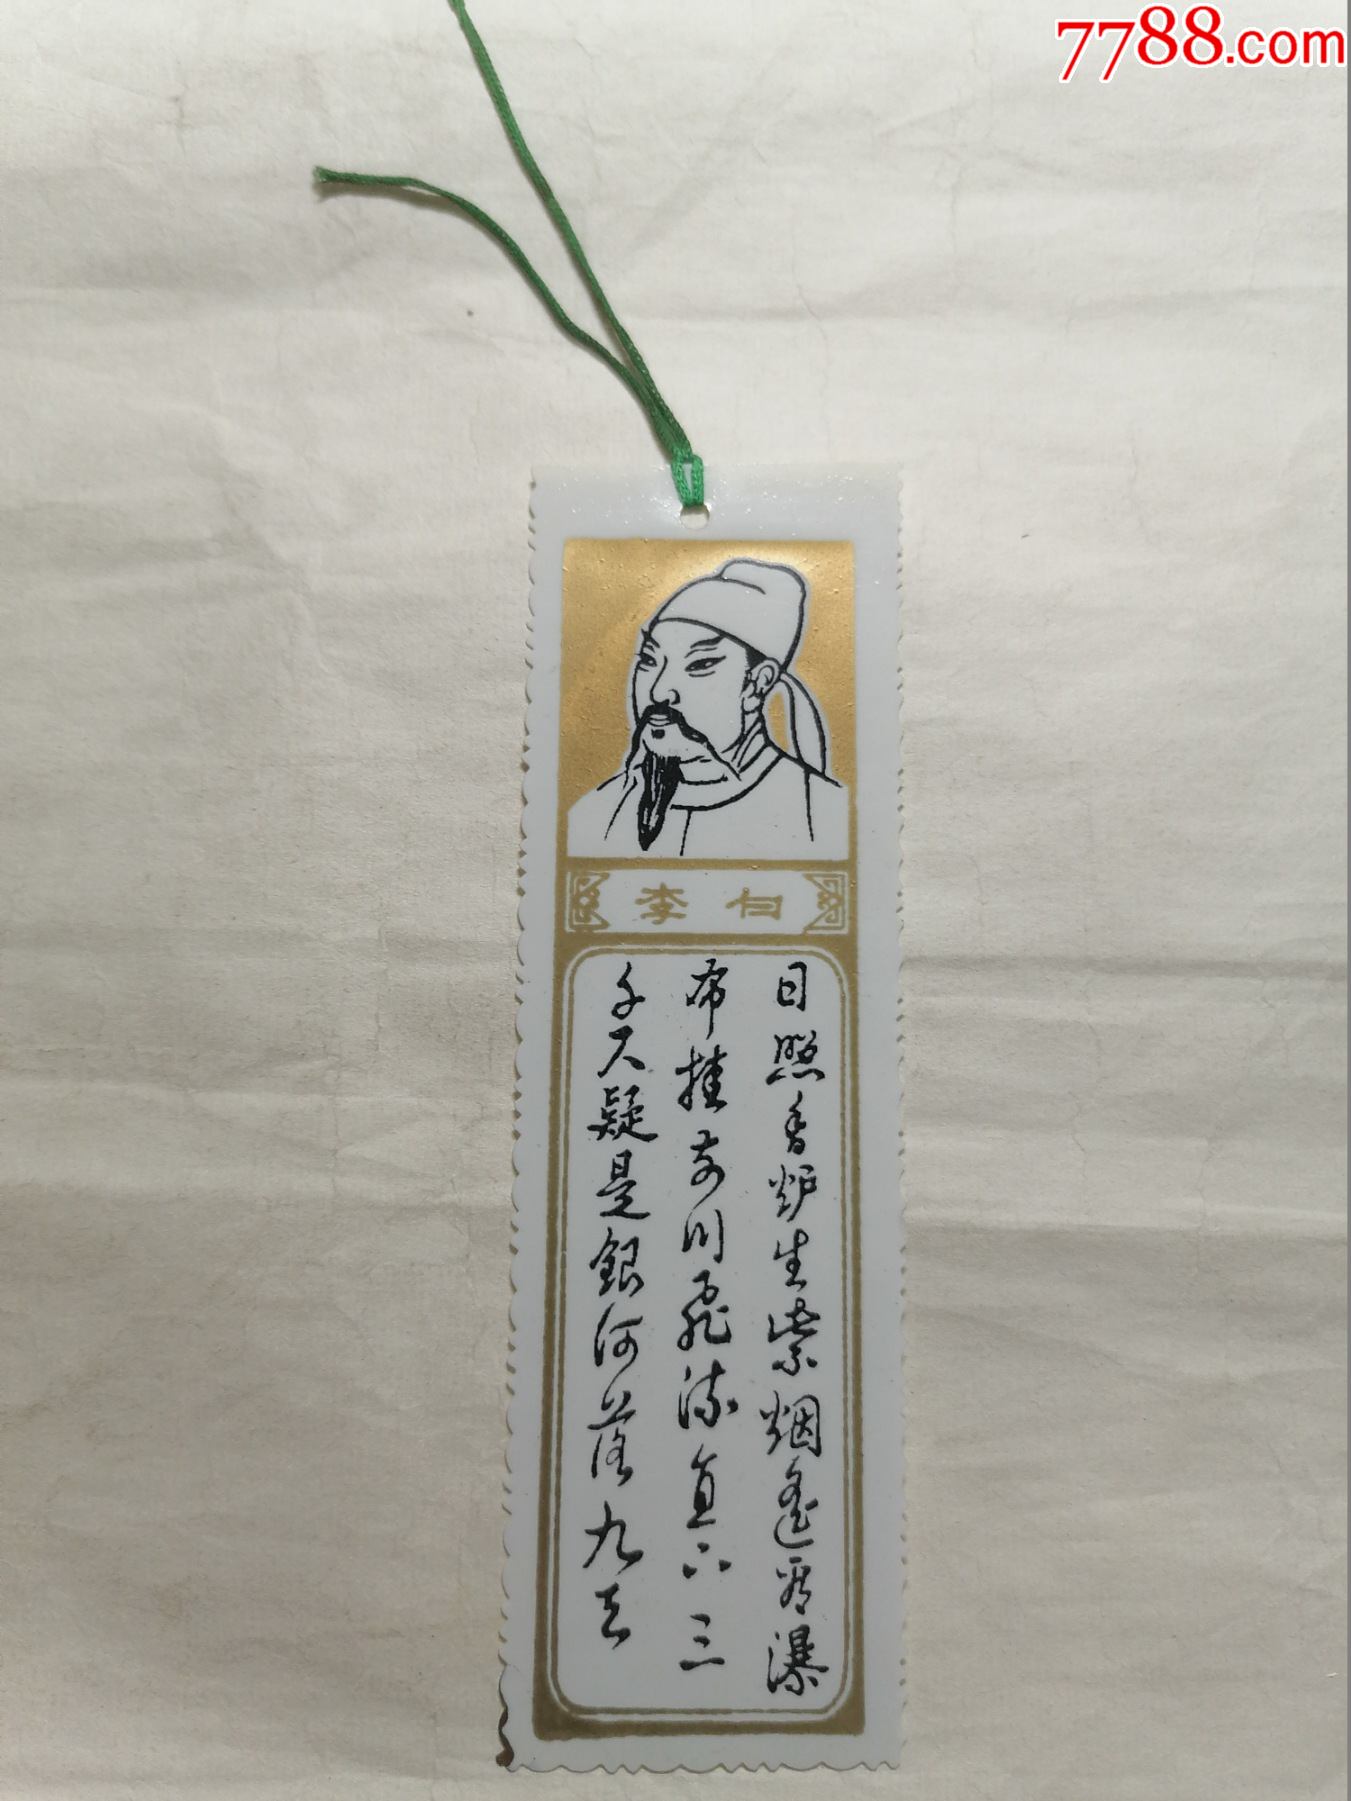 7788.com
李白
日照香炉生紫烟遥看瀑
布挂前川飛流直下三
千尺疑是銀河落九天